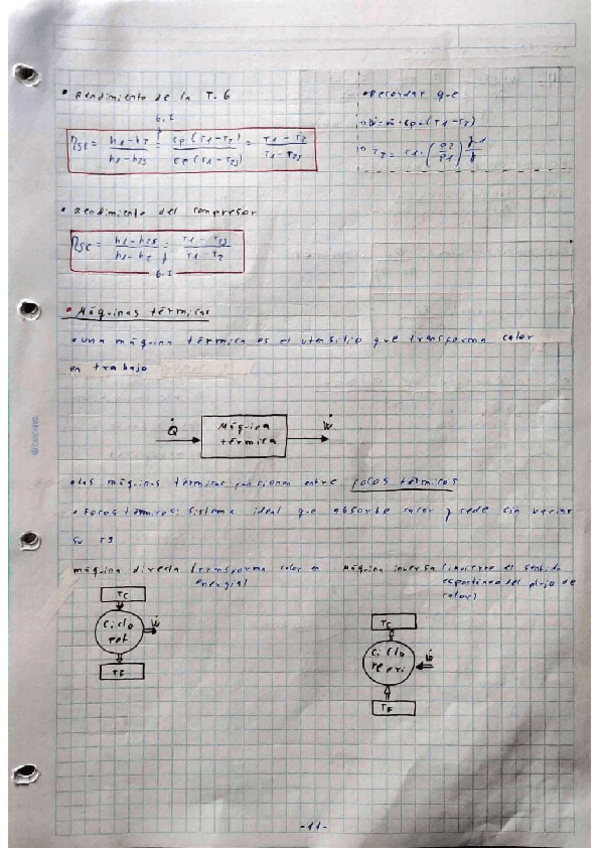 • Rendimiento de la T. G
• Recordar que
G.I
ηSt = h1-h2 / h1-h2s = cp (T1-T2) / cp (T1-T2s) = T1-T2 / T1-T2s
Ẇ = ṁ · cp · (T1-T2)
T2 = T1 · (P2/P1) γ-1/γ
• Rendimiento del compresor
ηSC = h1-h2s / h1-h2 = T1-T2s / T1-T2
G.I
• Máquinas térmicas
• una máquina térmica es el utensilio que transforma calor
en trabajo
Q̇ Máquina Ẇ
térmica
• Las máquinas térmicas funcionan entre focos térmicos
• Focos térmicos: sistema ideal que absorbe calor y cede sin variar
su Tª
máquina directa (transforma calor en
energía)
Máquina inversa (invierte el sentido
espontáneo del flujo de
calor)
TC
Ciclo
pot
Ẇ
TF
TC
Ciclo
refri
Ẇ
TF
-11-